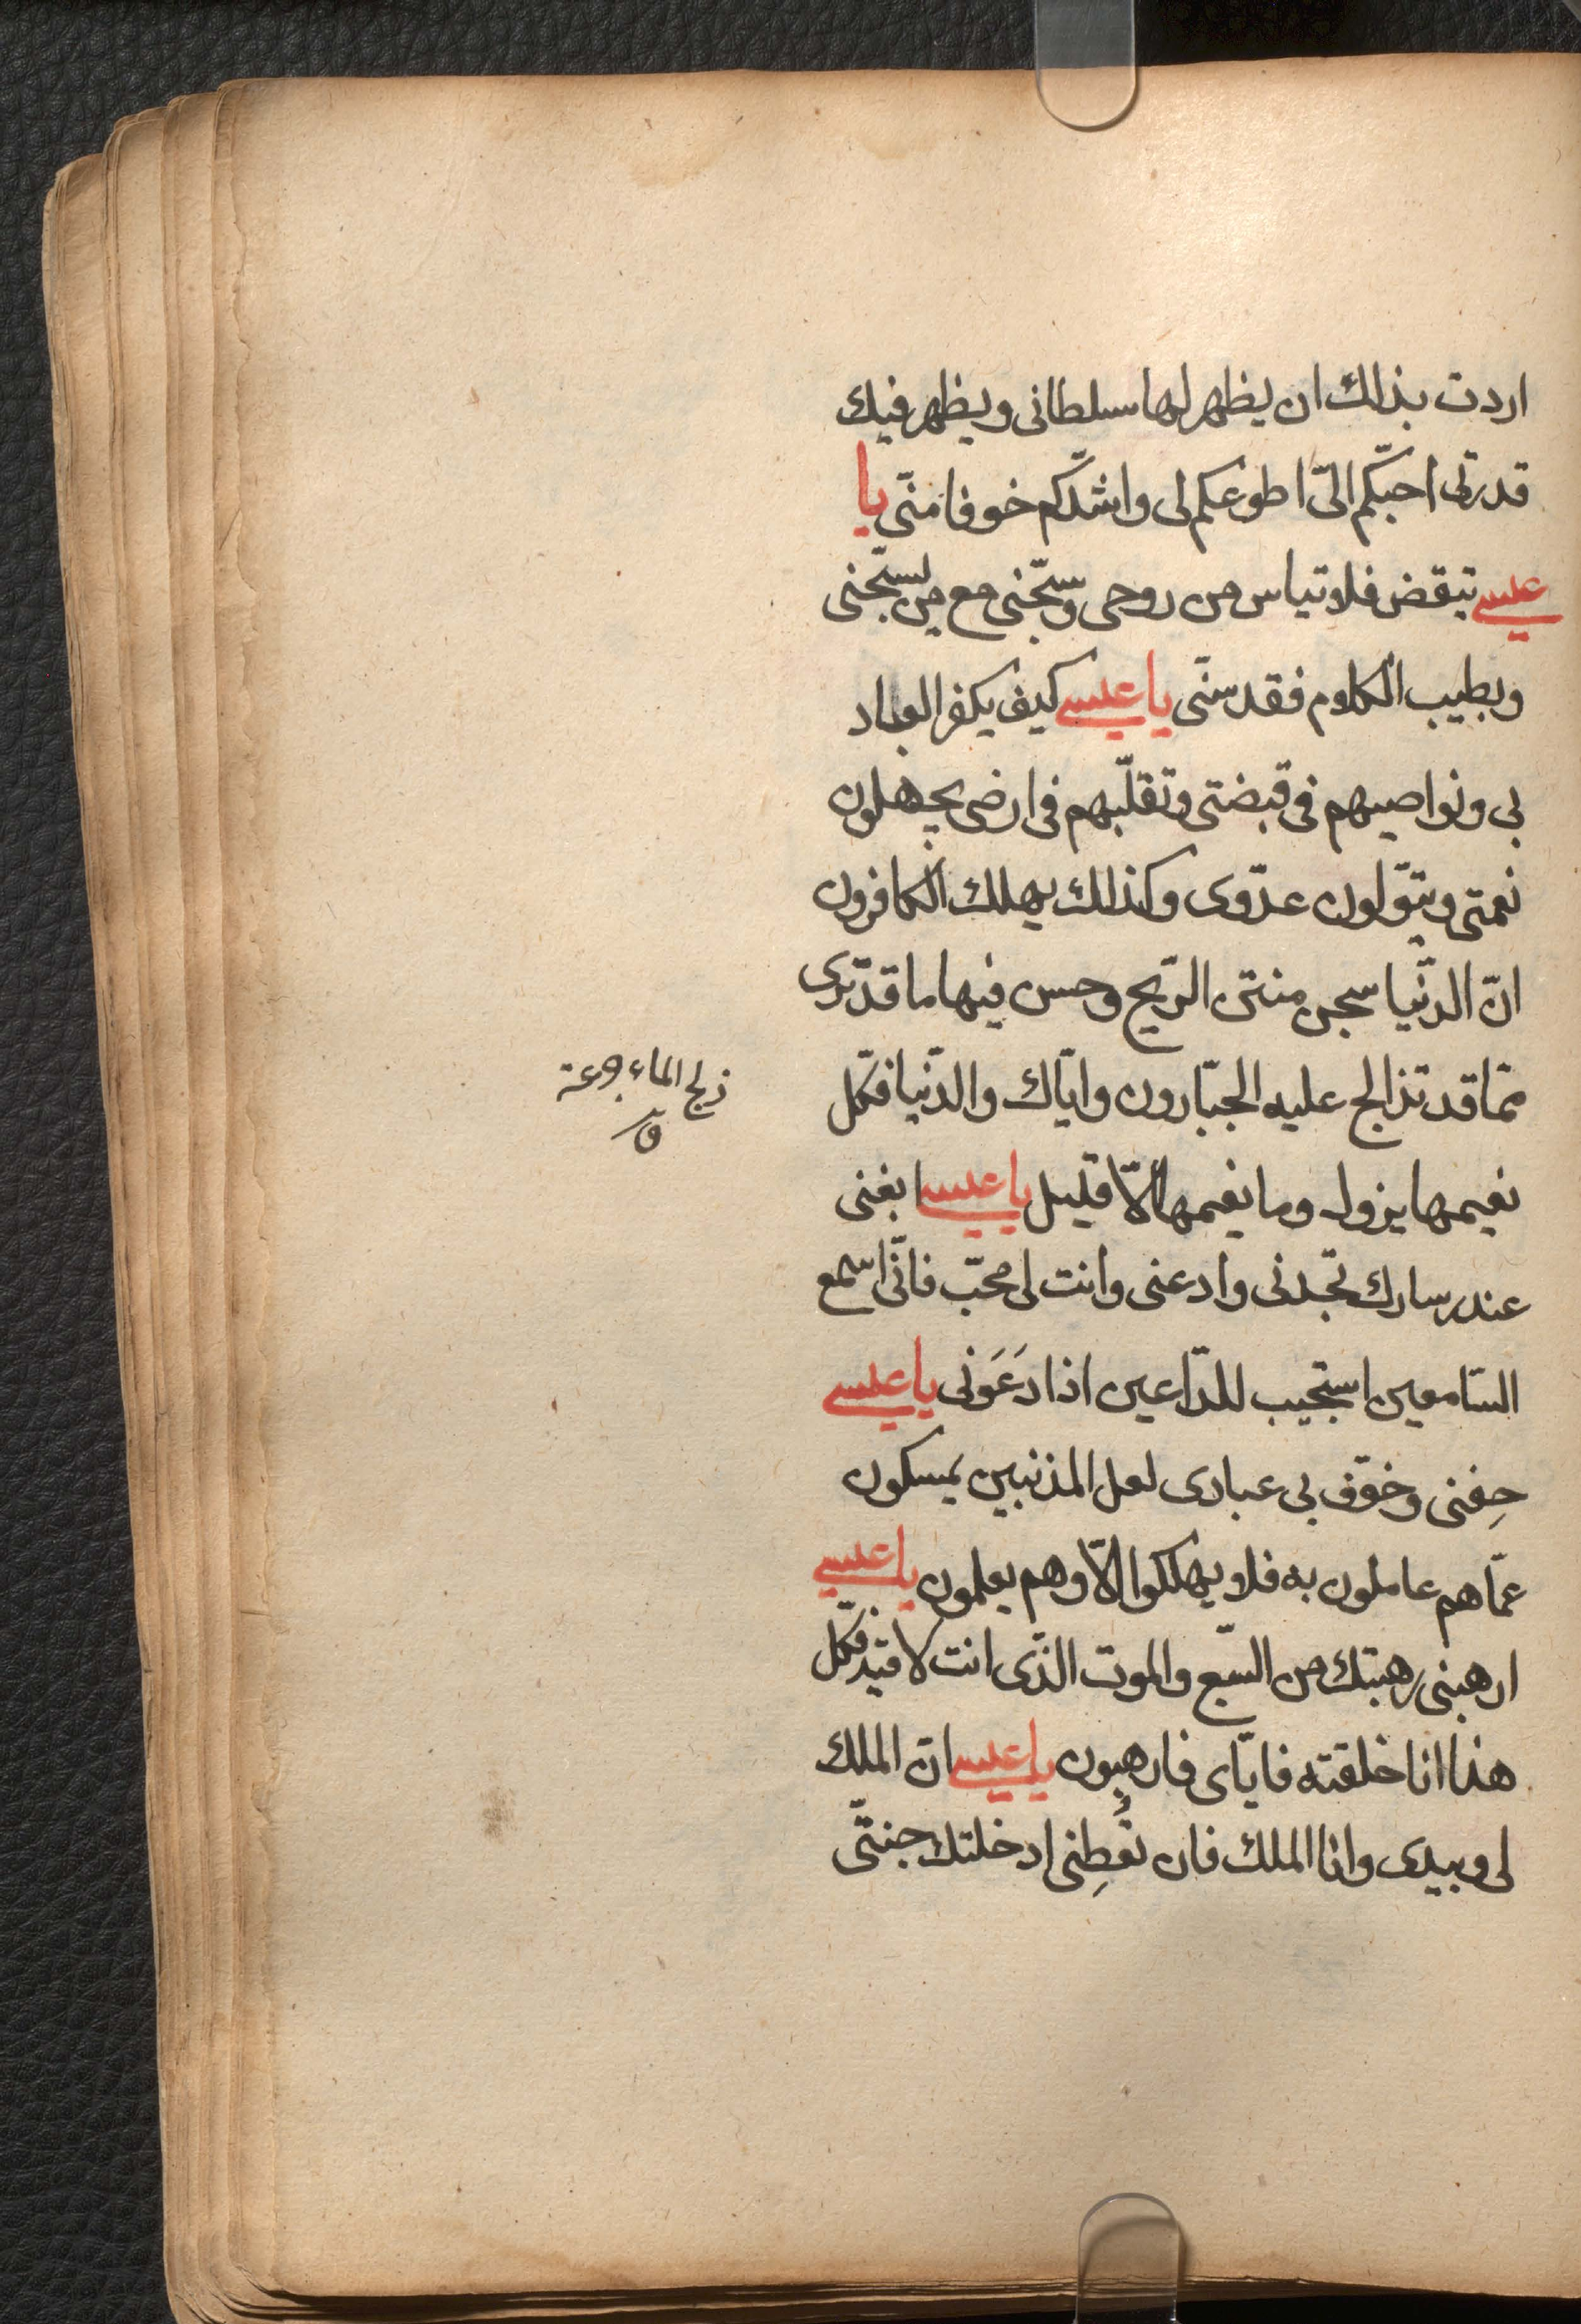 اردت بذالك ان يظهر لها سلطانى ويظهر فيك
قدرتى احبّكم الىّ اطوعكم لى واشدّكم خوفا منّى يا
عيسى تيقض فلا تياس من روحى وسبّحنى مع من يسبّحنى
وبطيب الكلام فقدسنّى يا عيسى كيف يكفر العباد
بى ونواصيهم فى قبضتى وتقلّبهم فى ارضى يجهلون
نعمتى ويتولّون عدّوى وكذالك يهلك الكافرون
انّ الدّنيا سجن منتن الرّيح وحسن فيها ما قد ترى
ممّا قد تذالج عليه الجبّارون وايّاك والدّنيا فكل
زلج الماء جرعة
ق
نعيمها يزول وما نعيمها الّا قليل يا عيسى ابغنى
عند رسارك تجدنى وادعنى وانت لى محبّ فانّى اسمع
السّامعين استجيب للدّاعين اذا دَعَونى يا عيسى
خِفنى وخوّف بى عبادى لعل المذنبين يمسكون
عمّاهم عاملون به فلا يهلكوا الّا وهم يعلمون يا عيسى
ارهبنى رهبتك من السّبع والموت الذّى انت لاقيه فكل
هذا انا خلقته فايّاى فارهبون يا عيسى انّ الملك
لى وبيدى وانا الملك فان تُطِعنى ادخلتك جنتّى